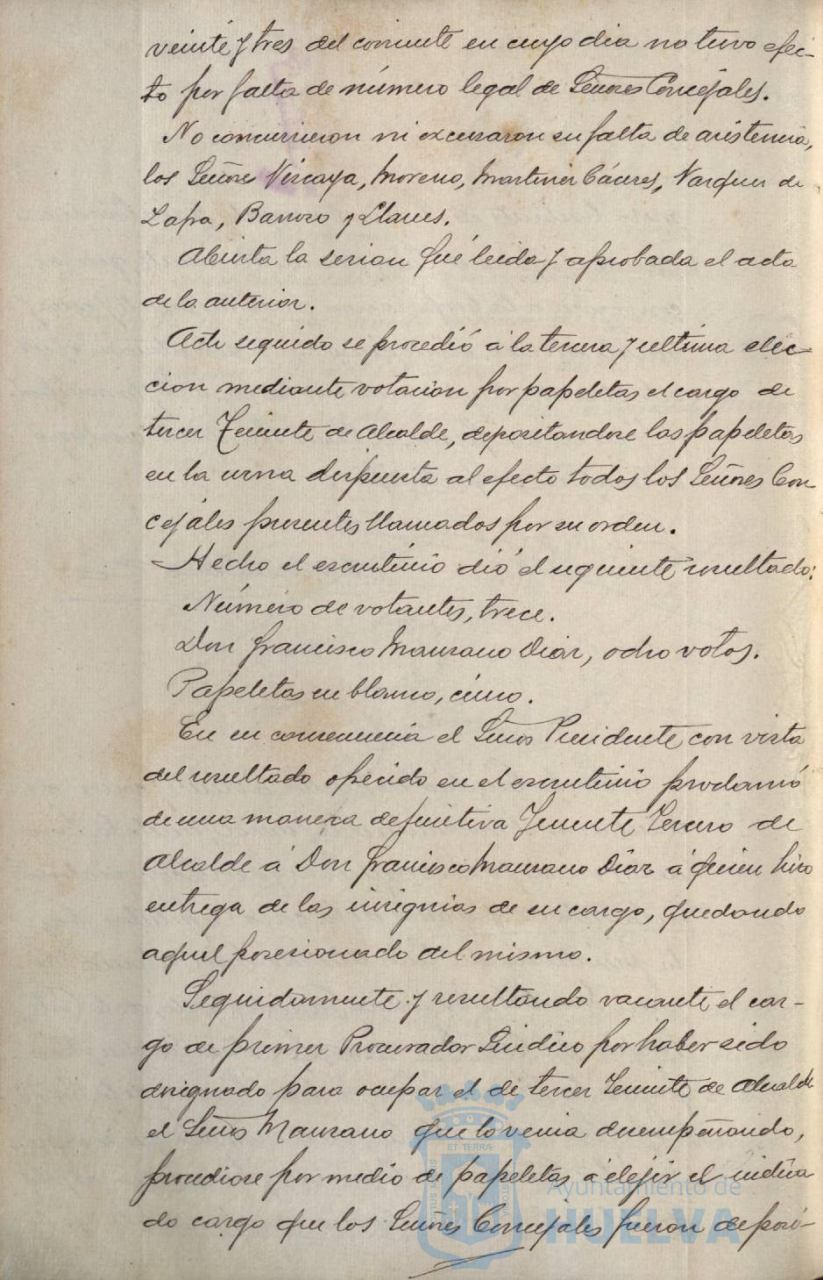 veinte y tres del corriente en cuyo dia no tuvo efec-
to por falta de número legal de Señores Concejales.
No concurrieron ni excusaron su falta de asistencia,
los Señores Vizcaya, Moreno, Martinez Cáceres, Vazquez de
Zapa, Barroso y Claves.
Abierta la sesion fué leida y aprobada el acta
de la anterior.
Acto seguido se procedió á la tercera y ultima elec-
cion mediante votacion por papeletas el cargo de
tercer Teniente de Alcalde, depositandose las papeletas
en la urna dispuesta al efecto todos los Señores Con
cejáles presentes llamados por su orden.
Hecho el escrutinio dió el siguiente resultado:
Número de votantes, trece.
Don Francisco Manzano Diaz, ocho votos.
Papeletas en blanco, cinco.
En su consecuencia el Señor Presidente con vista
del resultado ofrecido en el escrutinio proclamó
de una manera definitiva Teniente Tercero de
Alcalde á Don Francisco Manzano Diaz á quien hizo
entrega de las insignias de su cargo, quedando
aquel posesionado del mismo.
Seguidamente y resultando vacante el car-
go de primer Procurador Síndico por haber sido
designado para ocupar el de tercer Teniente de Alcalde
el Señor Manzano que lo venia desempeñando,
procediose por medio de papeletas á elejir el indica
do cargo que los Señores Concejales fueron deposi-
Ayuntamiento de
HUELVA